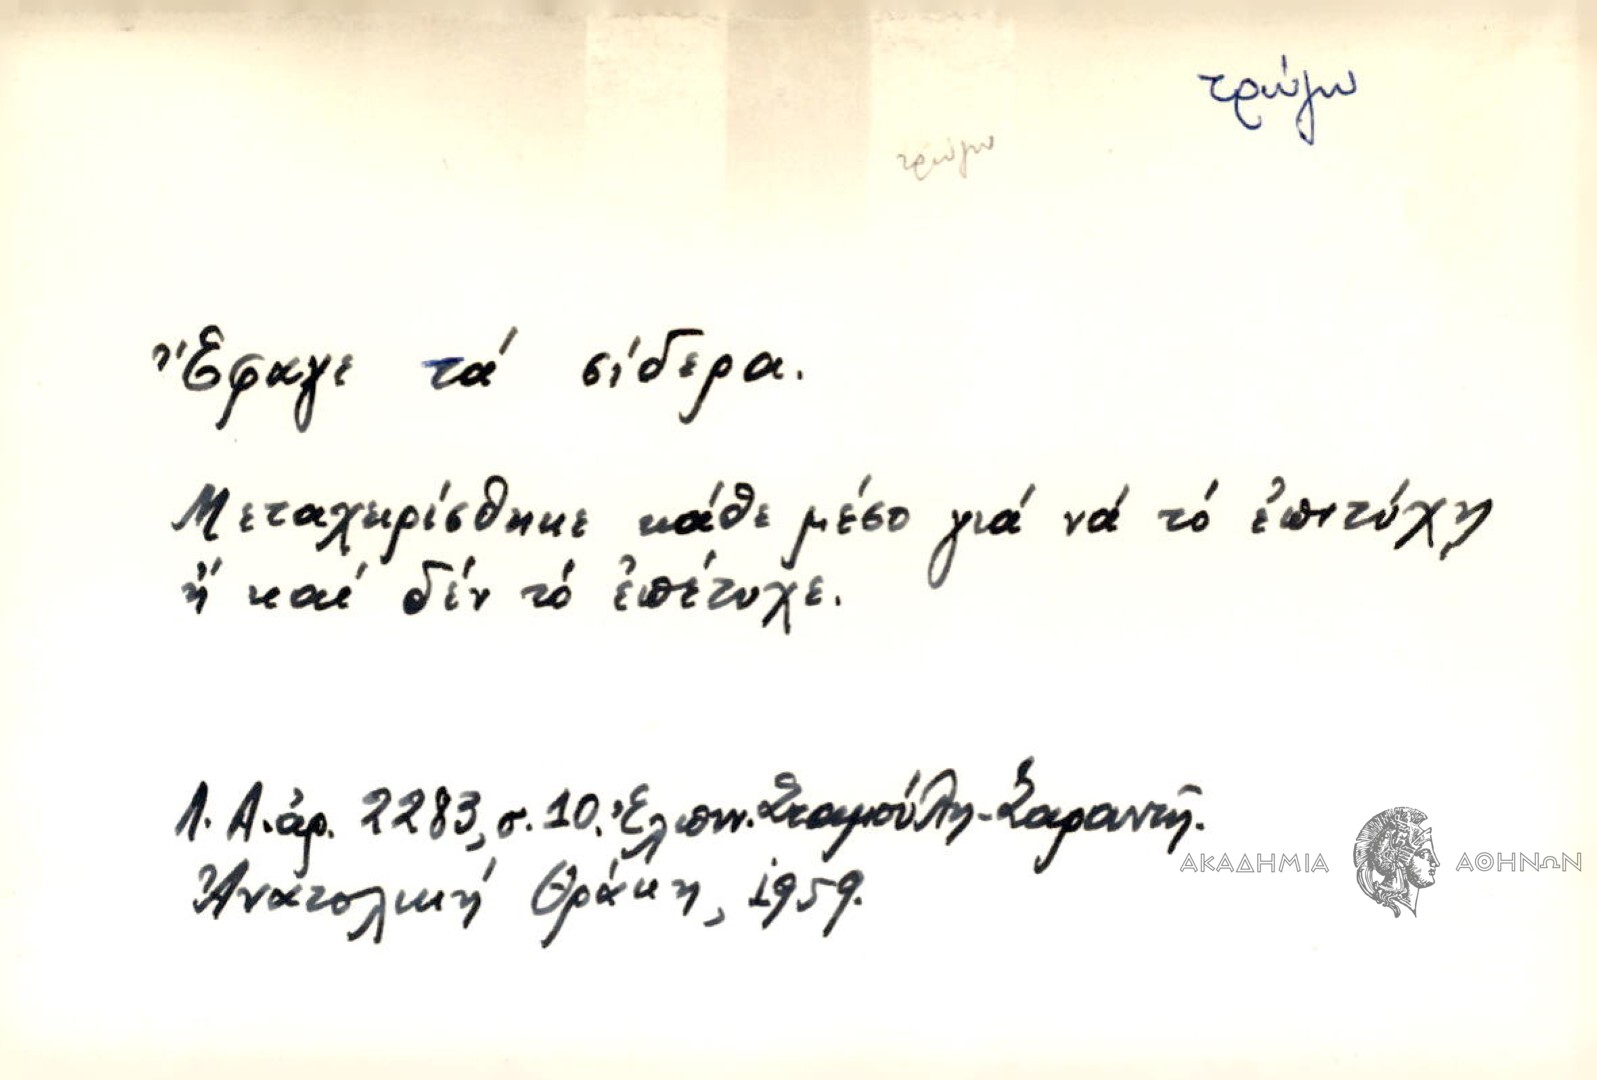 τρώγω
τρώγω
Ἔφαγε τά σίδερα.
Μεταχειρίσθηκε κάθε μέσο γιά νά τό ἐπιτύχη
ἤ καί δέν τό ἐπέτυχε.
Λ. Α. ἀρ. 2283, σ. 10. Ἐλπιν. Σταμούλη-Σαραντῆ.
Ἀνατολική Θράκη, 1959.
ΑΚΑΔΗΜΙΑ ΑΘΗΝΩΝ